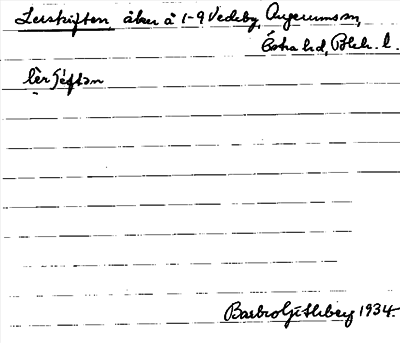 Lerskiften åker å 1-9 Vedeby, Augerums sn,
Östra hd, Blek. l.
Barbro Güthberg 1934.